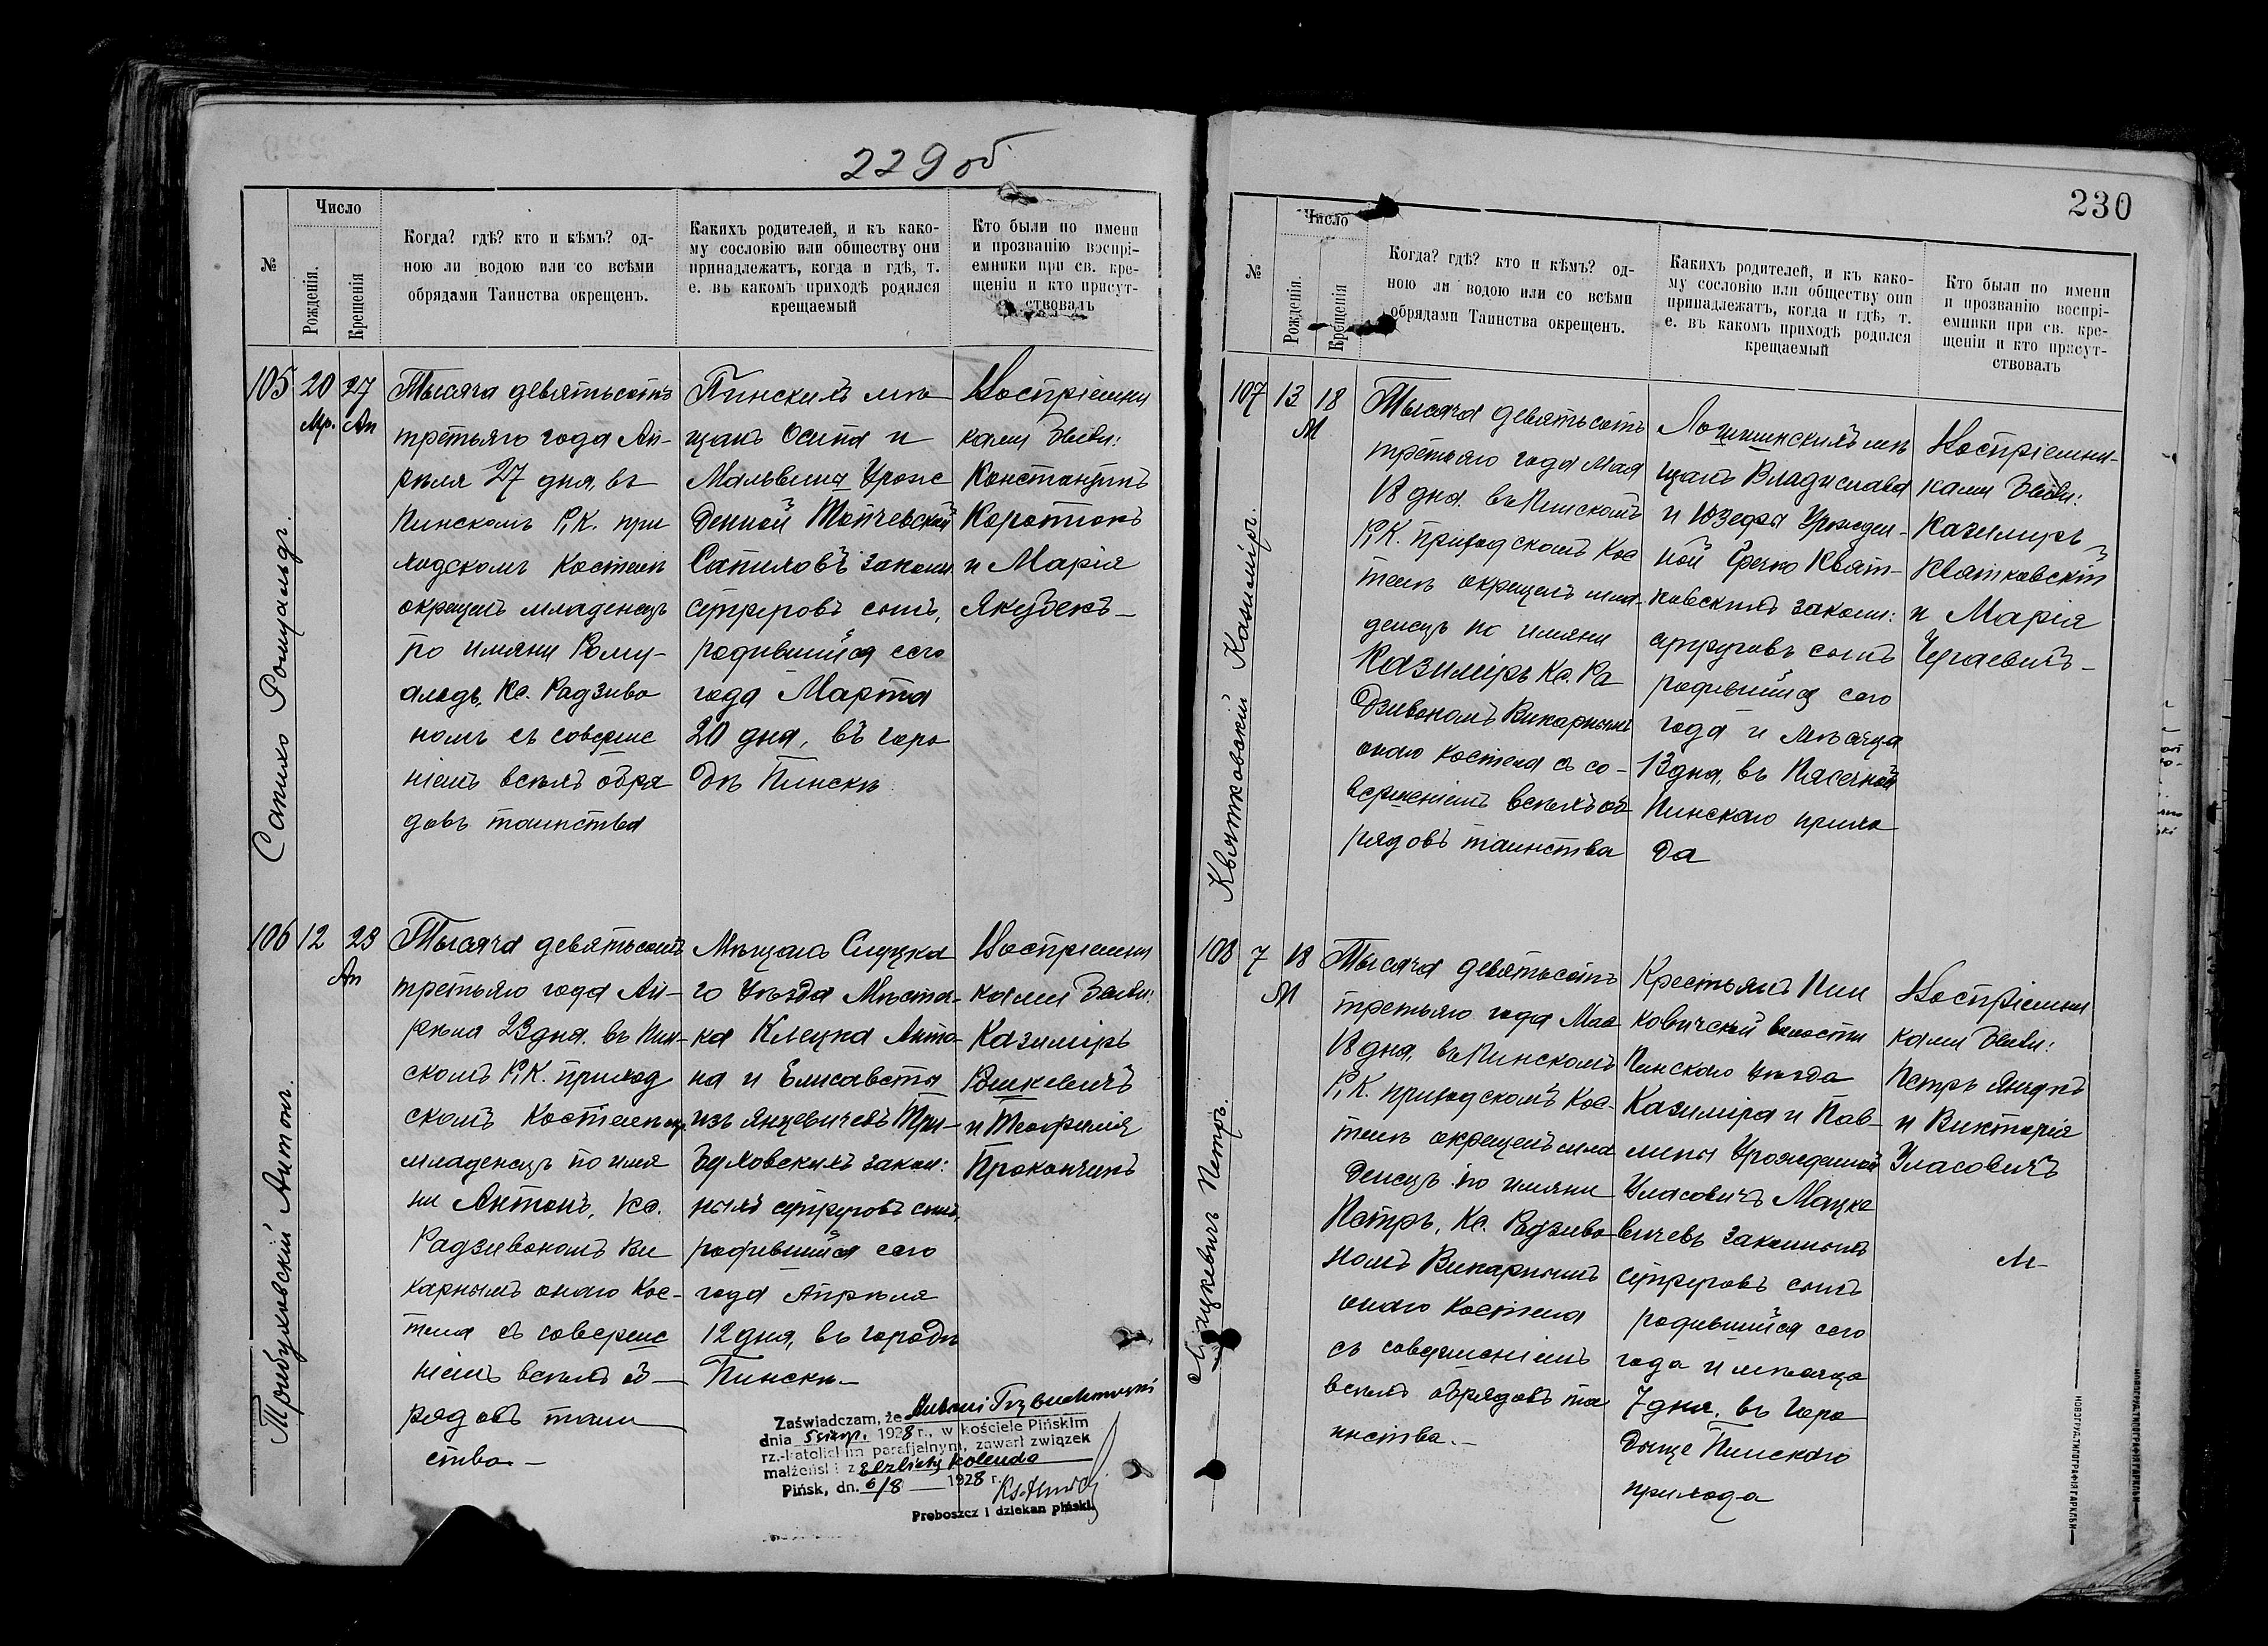 229 об
№
Число
Рожденія.
Крещенія
Когда? гдѣ? кто и кѣмъ? од-
ною ли водою или со всѣми
обрядами Таинства окрещенъ.
Какихъ родителей, и къ како-
му сословію или обществу они
принадлежатъ, когда и гдѣ, т.
е. въ какомъ приходѣ родился
крещаемый
Кто были по имени
и прозванію воспрі-
емники при св. кре-
щеніи и кто присут-
ствовалъ
Сапихо Ромуальдъ.
105 20 27
Мр. Ап
Тысяча девятьсотъ
третьяго года Ап-
рѣля 27 дня, въ
Пинскомъ Р. К. при
ходскомъ Костелѣ
окрещенъ младенецъ
по имяни Рому-
альдъ, Кс. Радзиво
номъ съ соверше
ніемъ всѣхъ обря
довъ таинства
Пинскихъ мѣ
щанъ Осипа и
Мальвина Урож
денной Топчевской
Сапиховъ законн
супруговъ сынъ,
родившійся сего
года Марта
20 дня, въ горо
дѣ Пинскѣ
Воспріемни
ками были:
Константинъ
Коротокъ
и Марія
Якубекъ
Трибуховскій Антонъ.
106 12 23
Ап
Тысяча девятьсотъ
третьяго года Ап-
рѣля 23 дня. въ Пин-
скомъ Р. К. приход
скомъ Костелѣ
младенецъ по имя
ни Антонъ, Кс.
Радзивономъ Ви
карнымъ онаго Кос-
тела съ соверше
ніемъ всѣхъ об
рядовъ таин
ства
Мѣщанъ Слуцка
го Уѣзда Мѣстеч-
ка Клецка Анто-
на и Елисаветы
изъ Янцевичевъ Три-
буховскихъ закон:
ныхъ супруговъ сынъ,
родившійся сего
года Апрѣля
12 дня, въ городѣ
Пинскѣ
Воспріемни
ками были:
Казиміръ
и Теофилія
Прокопчикъ
Zaświadczam, że Antoni Trzybuchowski
dnia 5 sierp. 1928 r., w kościele Pińskim
rz.-katolickim parafjalnym, zawarł związek
małżeński z Elżbietą Kolenda
Pińsk, dn. 6/8 1928 r.
Proboszcz i dziekan piński.
230
№
Число
Рожденія.
Крещенія
Когда? гдѣ? кто и кѣмъ? од-
ною ли водою или со всѣми
обрядами Таинства окрещенъ.
Какихъ родителей, и къ како-
му сословію или обществу они
принадлежатъ, когда и гдѣ, т.
е. въ какомъ приходѣ родился
крещаемый
Кто были по имени
и прозванію воспрі-
емники при св. кре-
щеніи и кто присут-
ствовалъ
Квятковскій Казиміръ.
107 13 18
М
Тысяча девятьсотъ
третьяго года Мая
18 дня. въ Пинскомъ
Р. К. приходскомъ Кос
телѣ окрещенъ мла-
денецъ по имяни
Казиміръ Кс. Ра
дзивономъ Викарнымъ
онаго Костела съ со-
вершеніемъ всѣхъ об
рядовъ таинства
Логишинскихъ мѣ
щанъ Владислава
и Юзефы Урожден-
ной Гречко Квят-
ковскихъ законн:
супруговъ сынъ
родившійся сего
года и мѣсяца
13 дня, въ Пасечной
Пинскаго прихо
да
Воспріемни-
ками были:
Казимиръ
Квятковскій
и Марія
Мацкевичъ Петръ.
108 7 18
М
Тысяча девятьсотъ
третьяго года Мая
18 дня, въ Пинскомъ
Р. К. приходскомъ Кос-
телѣ окрещенъ мла
денецъ по имяни
Петръ, Кс. Радзиво
номъ Викарнымъ
онаго Костела
съ совершеніемъ
всѣхъ обрядовъ та
инства.
Крестьянъ Пин
ковичской волости
Пинскаго Уѣзда
Казиміра и Пав-
лины Урожденной
Уласовичъ Мацке
вичевъ законныхъ
супруговъ сынъ
родившійся сего
года и мѣсяца
7 дня, въ Горо
дище Пинскаго
прихода
Воспріемни
ками были:
Петръ
и Викторія
Уласовичъ
М
НОВОГРУД. ТИПОГРАФІЯ ГАРКАВИ